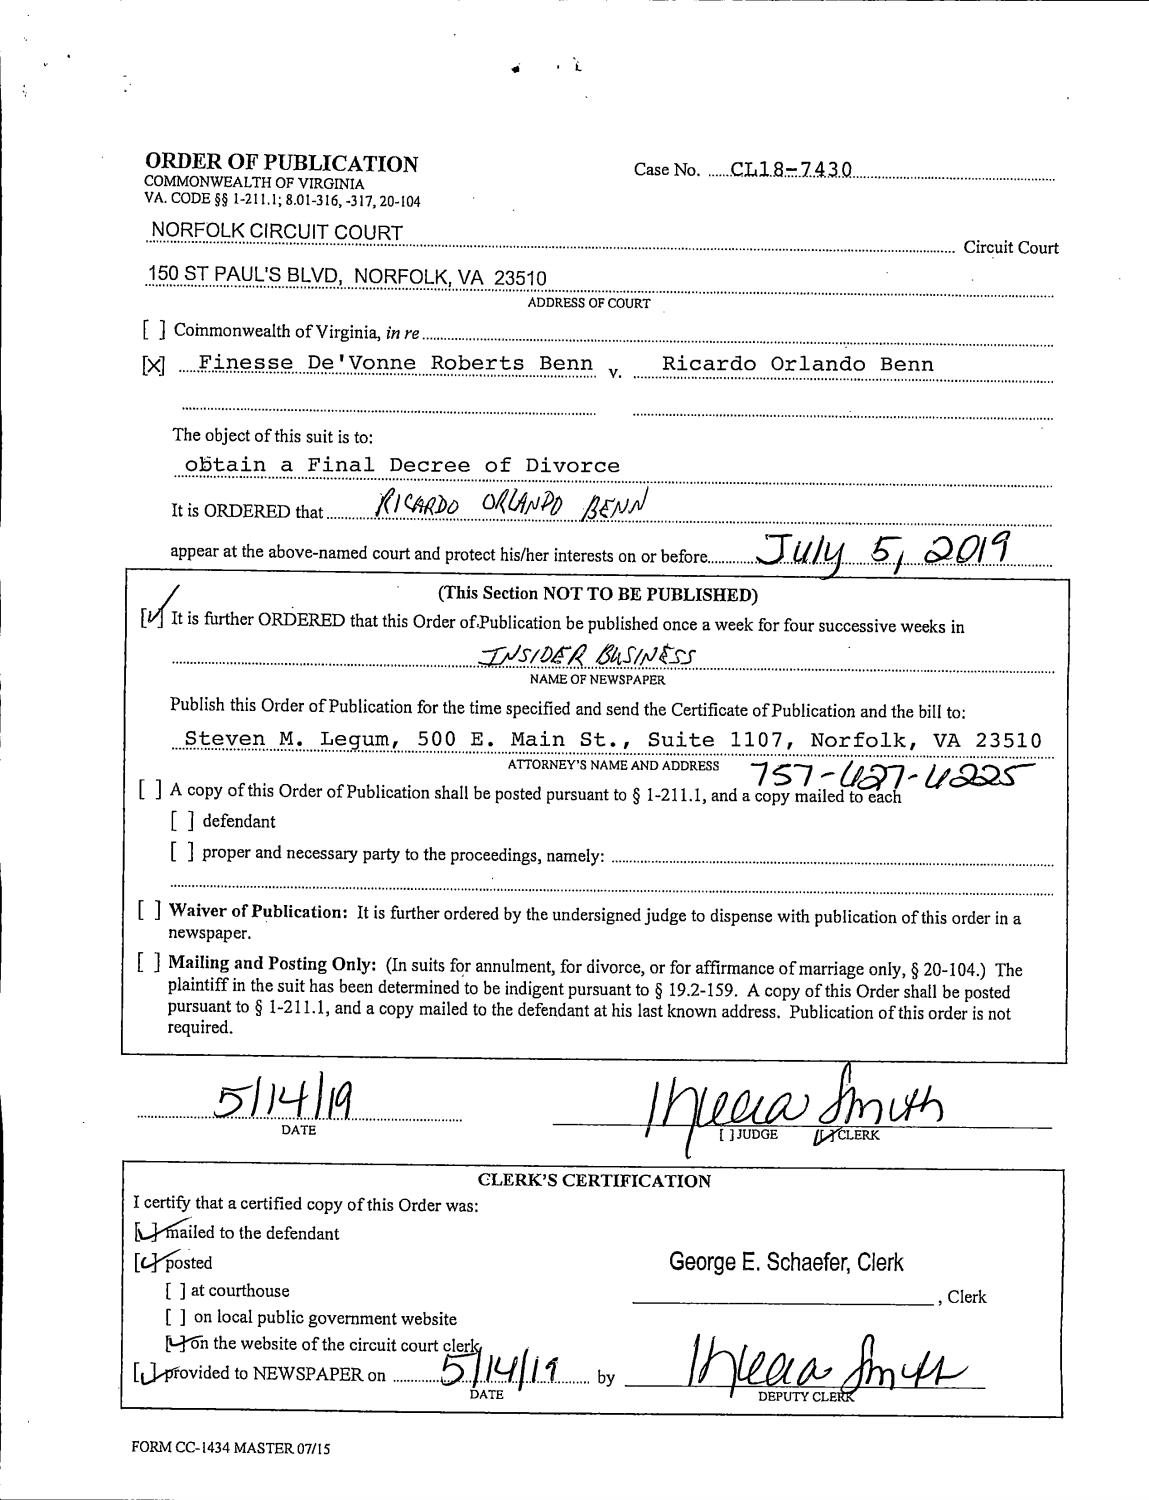 ORDER OF PUBLICATION
Case No. CL18-7430
COMMONWEALTH OF VIRGINIA
VA. CODE §§ 1-211.1; 8.01-316, -317, 20-104
NORFOLK CIRCUIT COURT Circuit Court
150 ST PAUL'S BLVD, NORFOLK, VA 23510
ADDRESS OF COURT
[ ] Commonwealth of Virginia, in re
[X] Finesse De'Vonne Roberts Benn v. Ricardo Orlando Benn
The object of this suit is to:
obtain a Final Decree of Divorce
It is ORDERED that RICARDO ORLANDO BENN
appear at the above-named court and protect his/her interests on or before July 5, 2019
(This Section NOT TO BE PUBLISHED)
[✓] It is further ORDERED that this Order of Publication be published once a week for four successive weeks in
INSIDER BUSINESS
NAME OF NEWSPAPER
Publish this Order of Publication for the time specified and send the Certificate of Publication and the bill to:
Steven M. Legum, 500 E. Main St., Suite 1107, Norfolk, VA 23510
ATTORNEY'S NAME AND ADDRESS 757-627-6225
[ ] A copy of this Order of Publication shall be posted pursuant to § 1-211.1, and a copy mailed to each
[ ] defendant
[ ] proper and necessary party to the proceedings, namely:
[ ] Waiver of Publication: It is further ordered by the undersigned judge to dispense with publication of this order in a
newspaper.
[ ] Mailing and Posting Only: (In suits for annulment, for divorce, or for affirmance of marriage only, § 20-104.) The
plaintiff in the suit has been determined to be indigent pursuant to § 19.2-159. A copy of this Order shall be posted
pursuant to § 1-211.1, and a copy mailed to the defendant at his last known address. Publication of this order is not
required.
5/14/19 Smith
DATE [ ] JUDGE [✓] CLERK
CLERK'S CERTIFICATION
I certify that a certified copy of this Order was:
[✓] mailed to the defendant
[✓] posted
George E. Schaefer, Clerk
[ ] at courthouse
, Clerk
[ ] on local public government website
[✓] on the website of the circuit court clerk
[✓] provided to NEWSPAPER on 5/14/19 by Smith
DATE DEPUTY CLERK
FORM CC-1434 MASTER 07/15